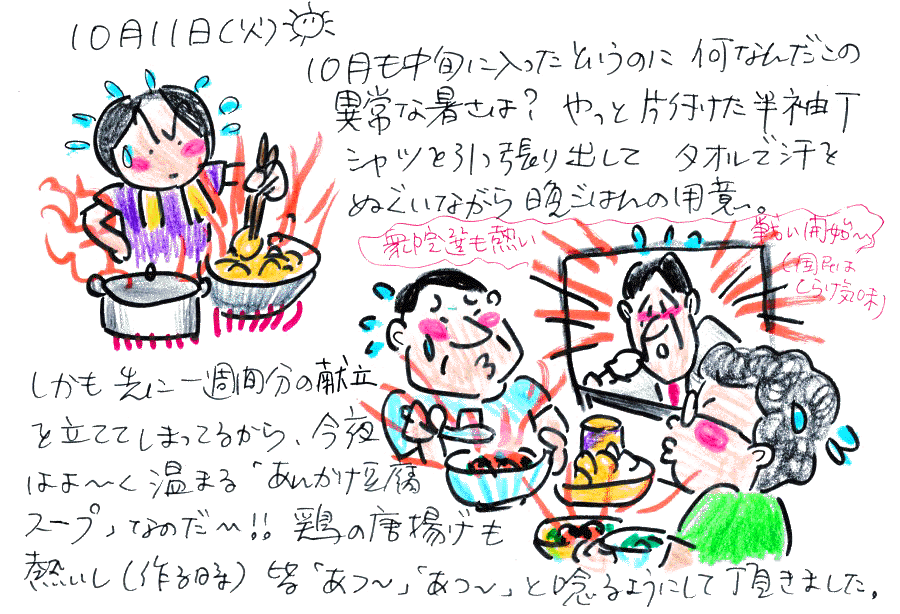 10月11日(火)
10月も中旬に入ったというのに 何なんだこの
異常な暑さは? やっと片付けた半袖T
シャツを引っ張り出して タオルで汗を
ぬぐいながら晩ごはんの用意。
衆院選も熱い
戦い開始〜
(国民は
しらけ気味)
しかも先に一週間分の献立
を立ててしまってるから、今夜
はよ〜く温まる「あんかけ豆腐
スープ」なのだ〜!! 鶏の唐揚げも
熱いし(作る時) 皆「あつ〜」「あつ〜」と唸るようにして頂きました。